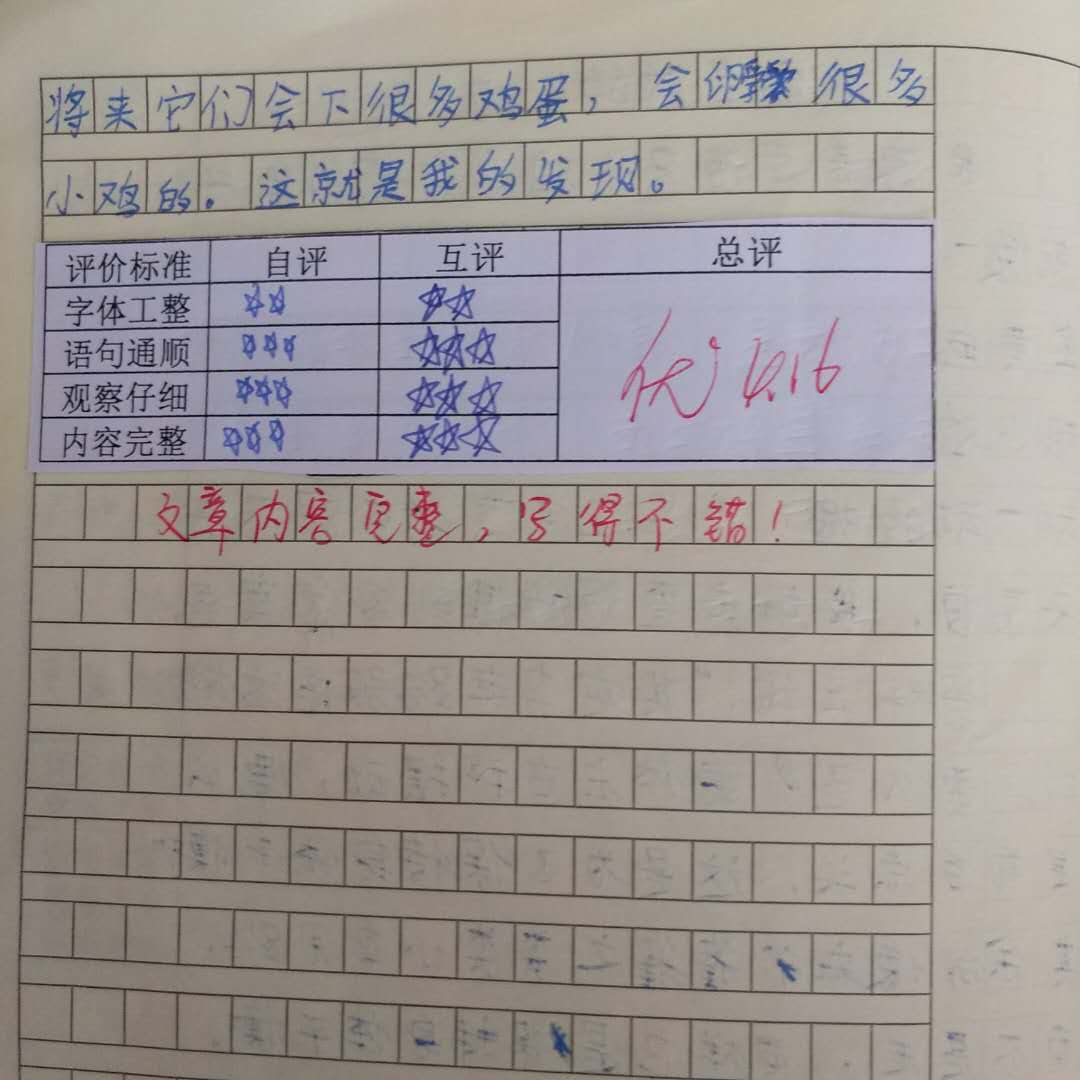 将来它们会下很多鸡蛋，会很多
小鸡的。这就是我的发现。
评价标准 自评 互评 总评
字体工整 ☆☆ ☆☆
语句通顺 ☆☆☆ ☆☆☆
观察仔细 ☆☆☆ ☆☆☆
内容完整 ☆☆☆ ☆☆☆
优 4.16
文章内容完整，写得不错！